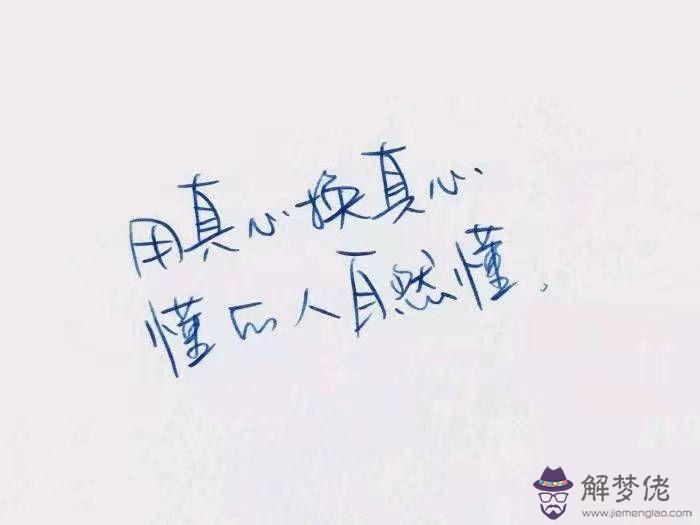 用真心换真心
懂的人自然懂.
解梦佬
www.jiemenglao.com